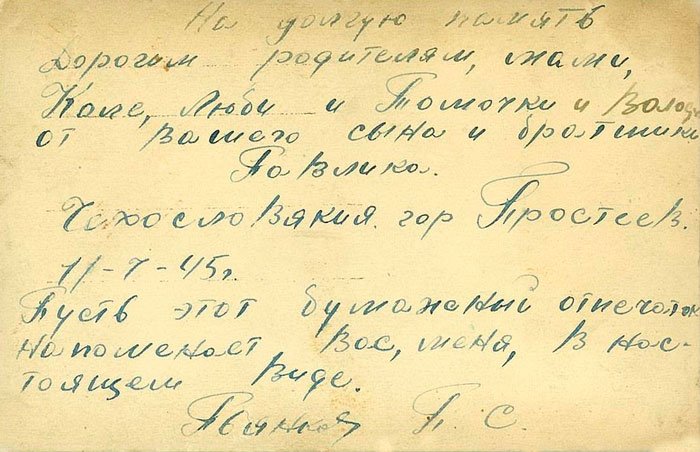 На долгую память
Дорогим родителям, мами,
Коле, Люби и Томочки и Володи
от вашего сына и братишки
Павлика.
Чехословякия гор Простеев.
11-7-45г.
Пусть этот бумажный отпечаток
напоменает Вас, меня, в нас-
тоящем виде.
П. С.